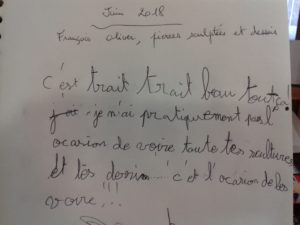 Juin 2018
François oliver, pierres sculptées et dessins
c'est trait trait beau tout ça!
j'ai je n'ai pratiquement pas l'
ocasion de voire toute tes scultures
et tes dessin..... c'ét l'ocasion de les
voire...!!!